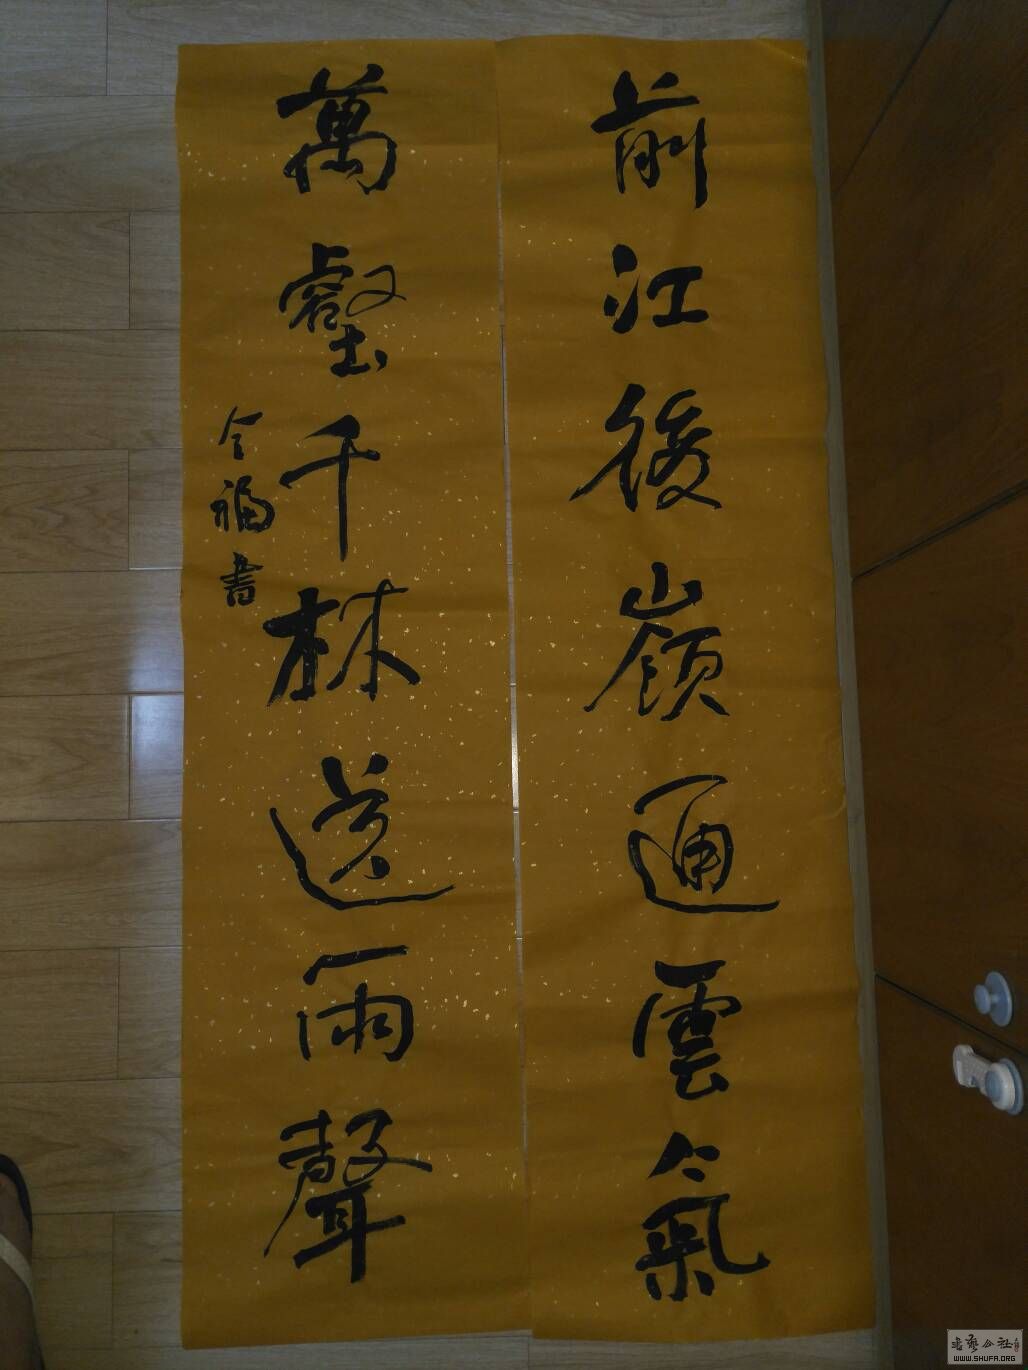 前江後嶺通雲氣
萬壑千林送雨聲
令福書
WWW.SHUFA.ORG